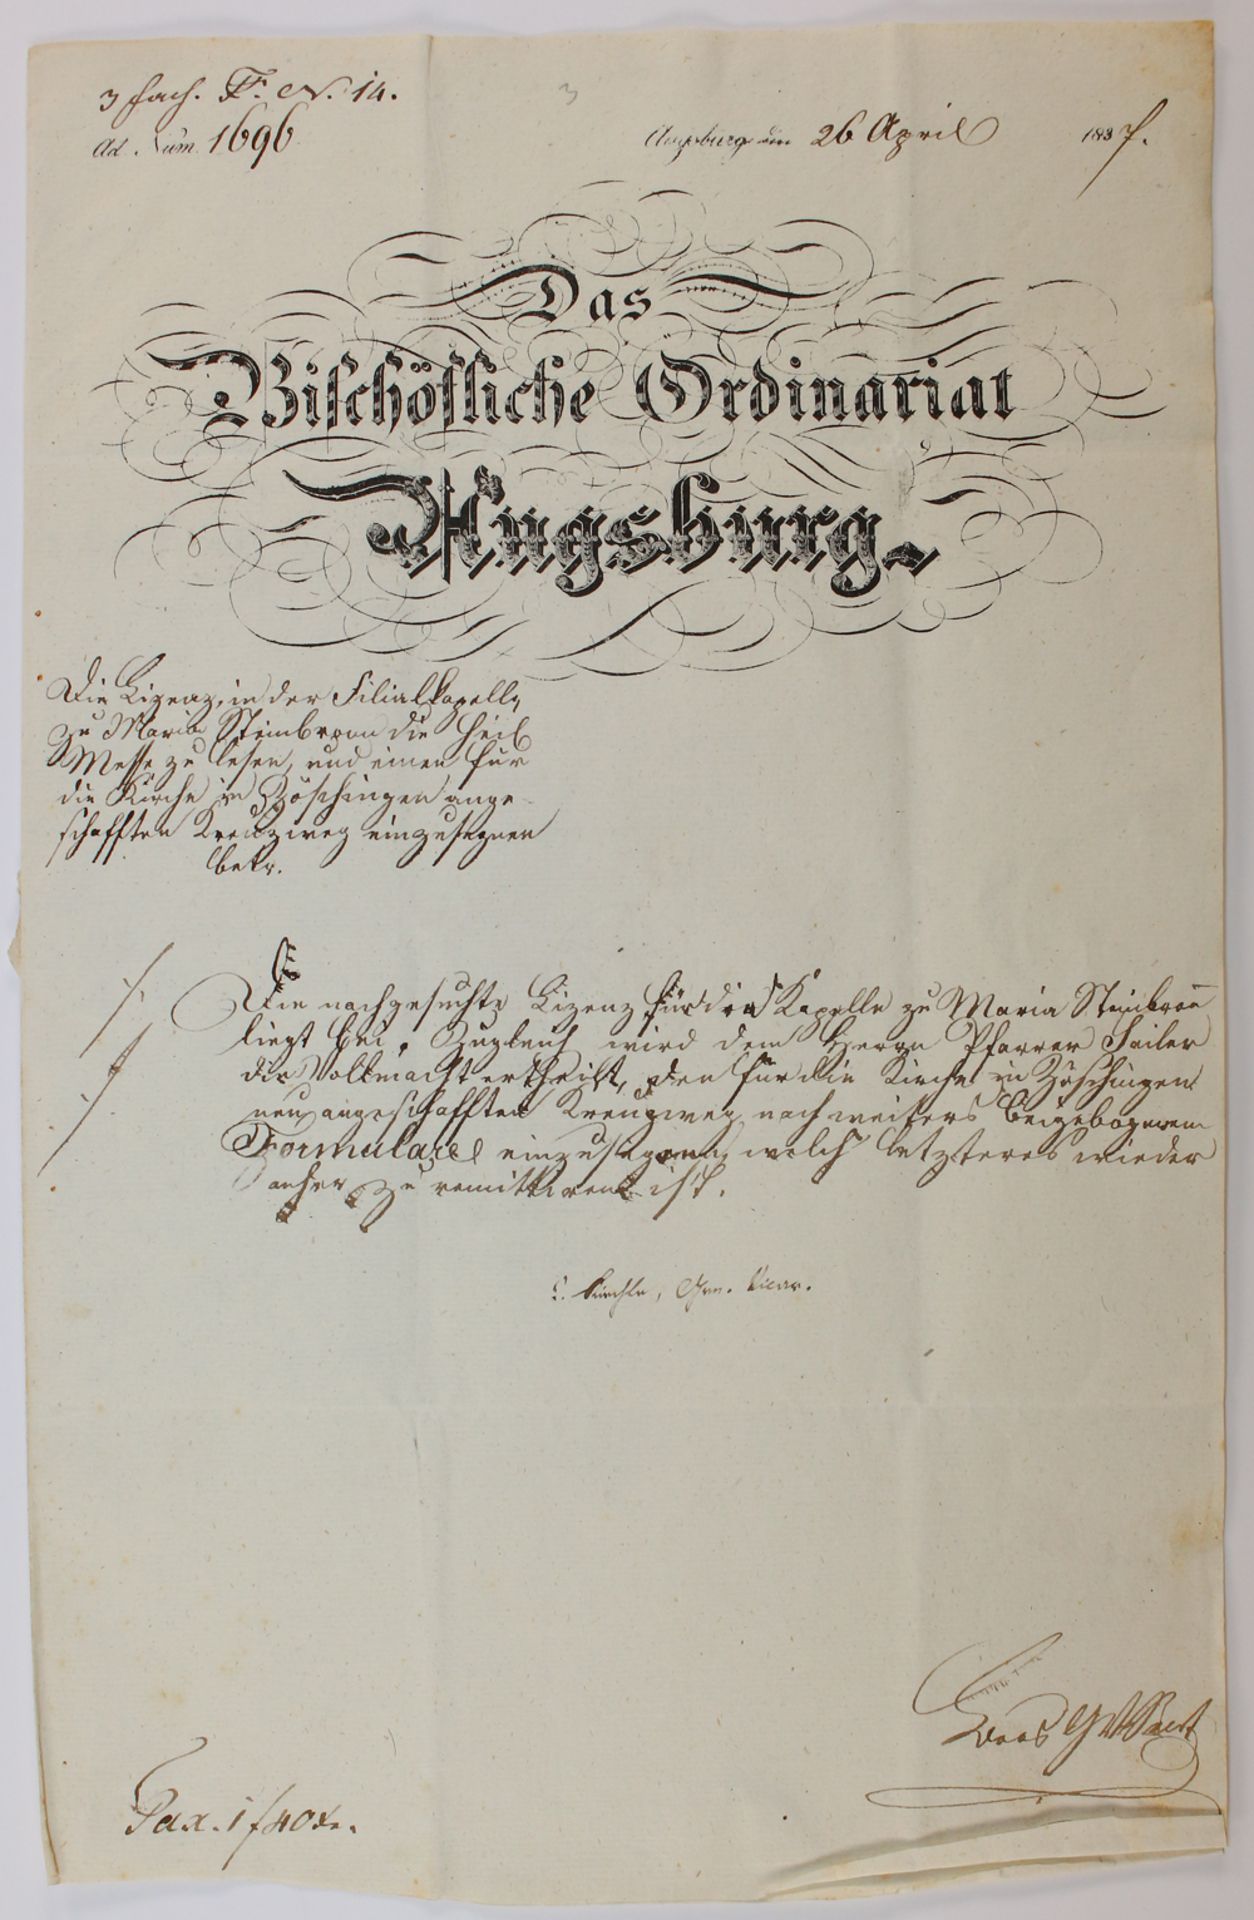 3 fach. F. N. 14.
Ad Num. 1696
Augsburg den 26 April 1837.
Das
Bischöfliche Ordinariat
Augsburg
Die Lizenz, in der Filialkapelle
zu Maria Steinbronn die heil.
Messe zu lesen, und einen für
die Kirche in Zöschingen ange-
schafften Kreuzweg einzusegnen
betr.
Die nachgesuchte Lizenz für die Kapelle zu Maria Steinbronn
liegt bei. Zugleich wird dem Herrn Pfarrer Sailer
die Vollmacht ertheilt, den für die Kirche in Zöschingen
neu angeschafften Kreuzweg nach weiters beigebogenem
Formulare einzusegnen, welch letzteres wieder
anher zu remittiren ist.
Gen. Vicar.
Tax. 1 f 40 xr.